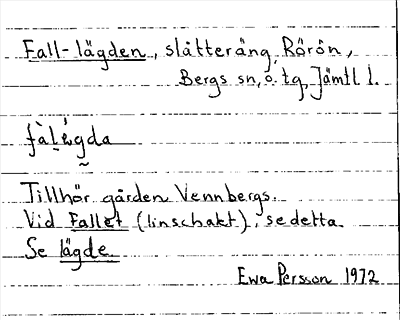 Fall-lägden, slåtteräng, Rörön,
Bergs sn, o. tg, Jämtl l.
fàlǽgda
Tillhör gården Vennbergs.
Vid Fallet (linschakt), se detta.
Se lägde
Ewa Persson 1972